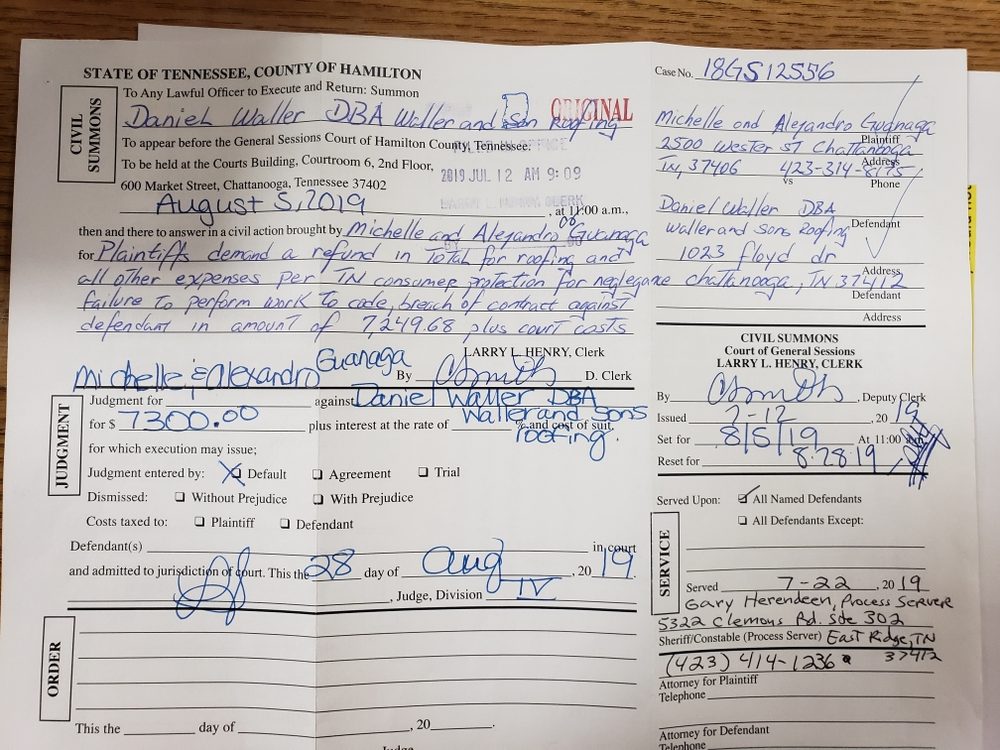 STATE OF TENNESSEE, COUNTY OF HAMILTON
CIVIL SUMMONS
To Any Lawful Officer to Execute and Return: Summon
Daniel Waller DBA Waller and Son Roofing
ORIGINAL
To appear before the General Sessions Court of Hamilton County, Tennessee.
To be held at the Courts Building, Courtroom 6, 2nd Floor,
2019 JUL 12 AM 9:09
600 Market Street, Chattanooga, Tennessee 37402
August 5, 2019 , at 11:00 a.m.,
then and there to answer in a civil action brought by Michelle and Alejandro Guanaga
for Plaintiffs demand a refund in Total for roofing and
all other expenses per TN consumer protection for neglegance
failure to perform work to code, breach of contract against
defendant in amount of 7,249.68 plus court costs
LARRY L. HENRY, Clerk
By CSmith D. Clerk
JUDGMENT
Michelle & Alexandro Guanaga
Judgment for against Daniel Waller DBA
Waller and Sons
roofing.
for $ 7300.00 plus interest at the rate of % and cost of suit,
for which execution may issue;
Judgment entered by: X Default Agreement Trial
Dismissed: Without Prejudice With Prejudice
Costs taxed to: Plaintiff Defendant
Defendant(s) in court
and admitted to jurisdiction of court. This the 28 day of Aug , 20 19.
, Judge, Division IV
ORDER
This the day of , 20 .
Judge
Case No. 18GS12556
Michelle and Alejandro Guanaga
Plaintiff
2500 Wester ST Chattanooga
Address
TN, 37406 423-314-8175
vs Phone
Daniel Waller DBA
Defendant
Waller and Sons Roofing
1023 floyd dr
Address
chattanooga, TN 37412
Defendant
Address
CIVIL SUMMONS
Court of General Sessions
LARRY L. HENRY, CLERK
By CSmith , Deputy Clerk
Issued 7-12 , 20 19
Set for 8/5/19 At 11:00 a.m.
Reset for 8.28.19
SERVICE
Served Upon: ✓ All Named Defendants
All Defendants Except:
Served 7-22 , 20 19
Gary Herendeen, Process Server
5322 Clemons Rd. Ste 302
Sheriff/Constable (Process Server) East Ridge, TN
(423) 414-1236 37412
Attorney for Plaintiff
Telephone
Attorney for Defendant
Telephone